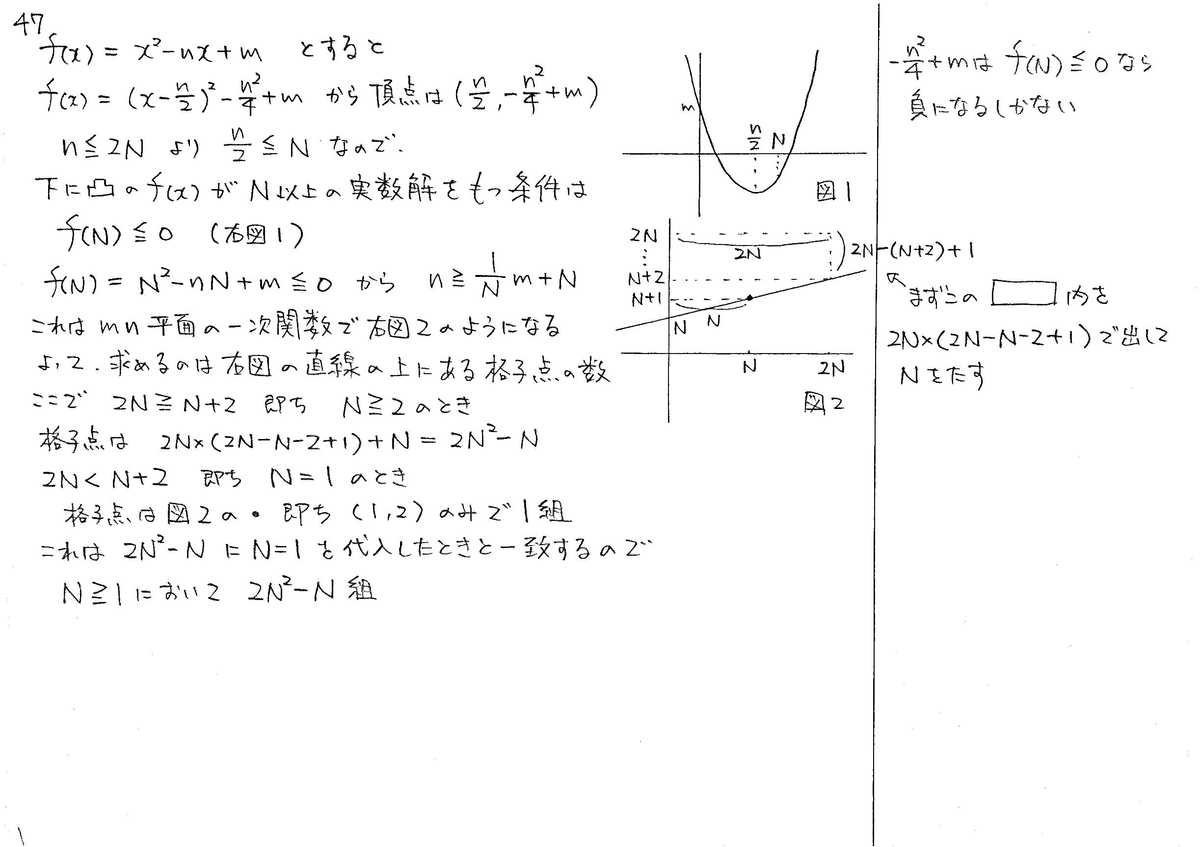 47
f(x) = x²-nx+m とすると
f(x) = (x-n/2)²-n²/4+m から 頂点は (n/2, -n²/4+m)
n≦2N より n/2≦N なので.
下に凸の f(x) が N以上の実数解をもつ条件は
f(N)≦0 (右図1)
f(N) = N²-nN+m≦0 から n≧1/N m+N
これは mn平面の一次関数で右図2のようになる
よって. 求めるのは右図の直線の上にある格子点の数
ここで 2N≧N+2 即ち N≧2のとき
格子点は 2N×(2N-N-2+1)+N = 2N²-N
2N<N+2 即ち N=1のとき
格子点は図2の• 即ち (1,2) のみで1組
これは 2N²-N に N=1 を代入したときと一致するので
N≧1において 2N²-N 組
m
n/2 N
図1
2N
⋮
N+2
N+1
2N
2N-(N+2)+1
N
N
N
2N
図2
-n²/4+mは f(N)≦0なら
負になるしかない
まずこの 内を
2N×(2N-N-2+1)で出して
Nをたす